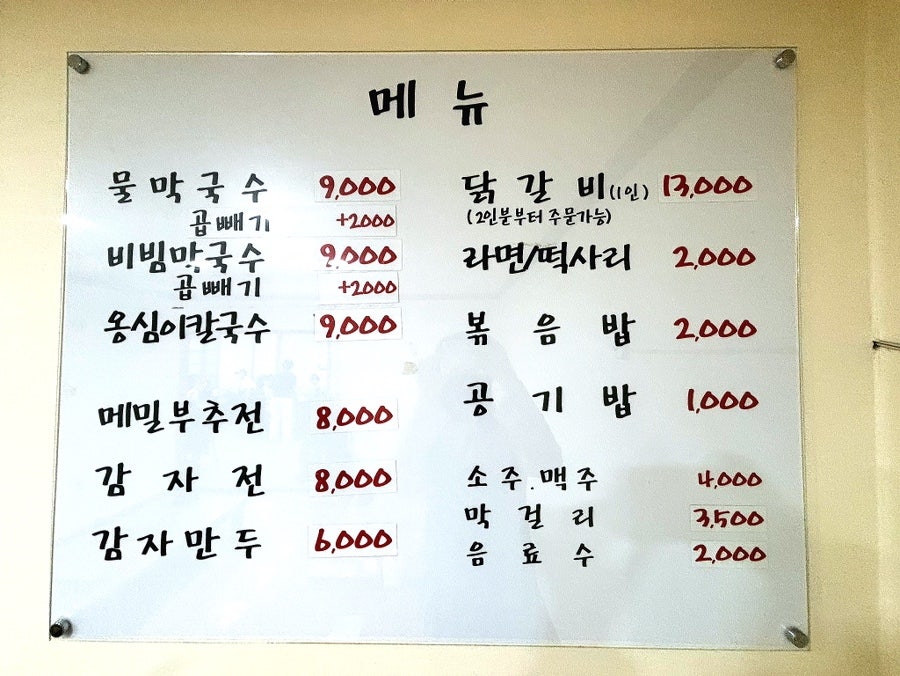 메뉴
물막국수 9,000
곱빼기 +2000
비빔막국수 9,000
곱빼기 +2000
옹심이칼국수 9,000
메밀부추전 8,000
감자전 8,000
감자만두 6,000
닭갈비(1인) 13,000
(2인분부터 주문가능)
라면/떡사리 2,000
볶음밥 2,000
공기밥 1,000
소주.맥주 4,000
막걸리 3,500
음료수 2,000